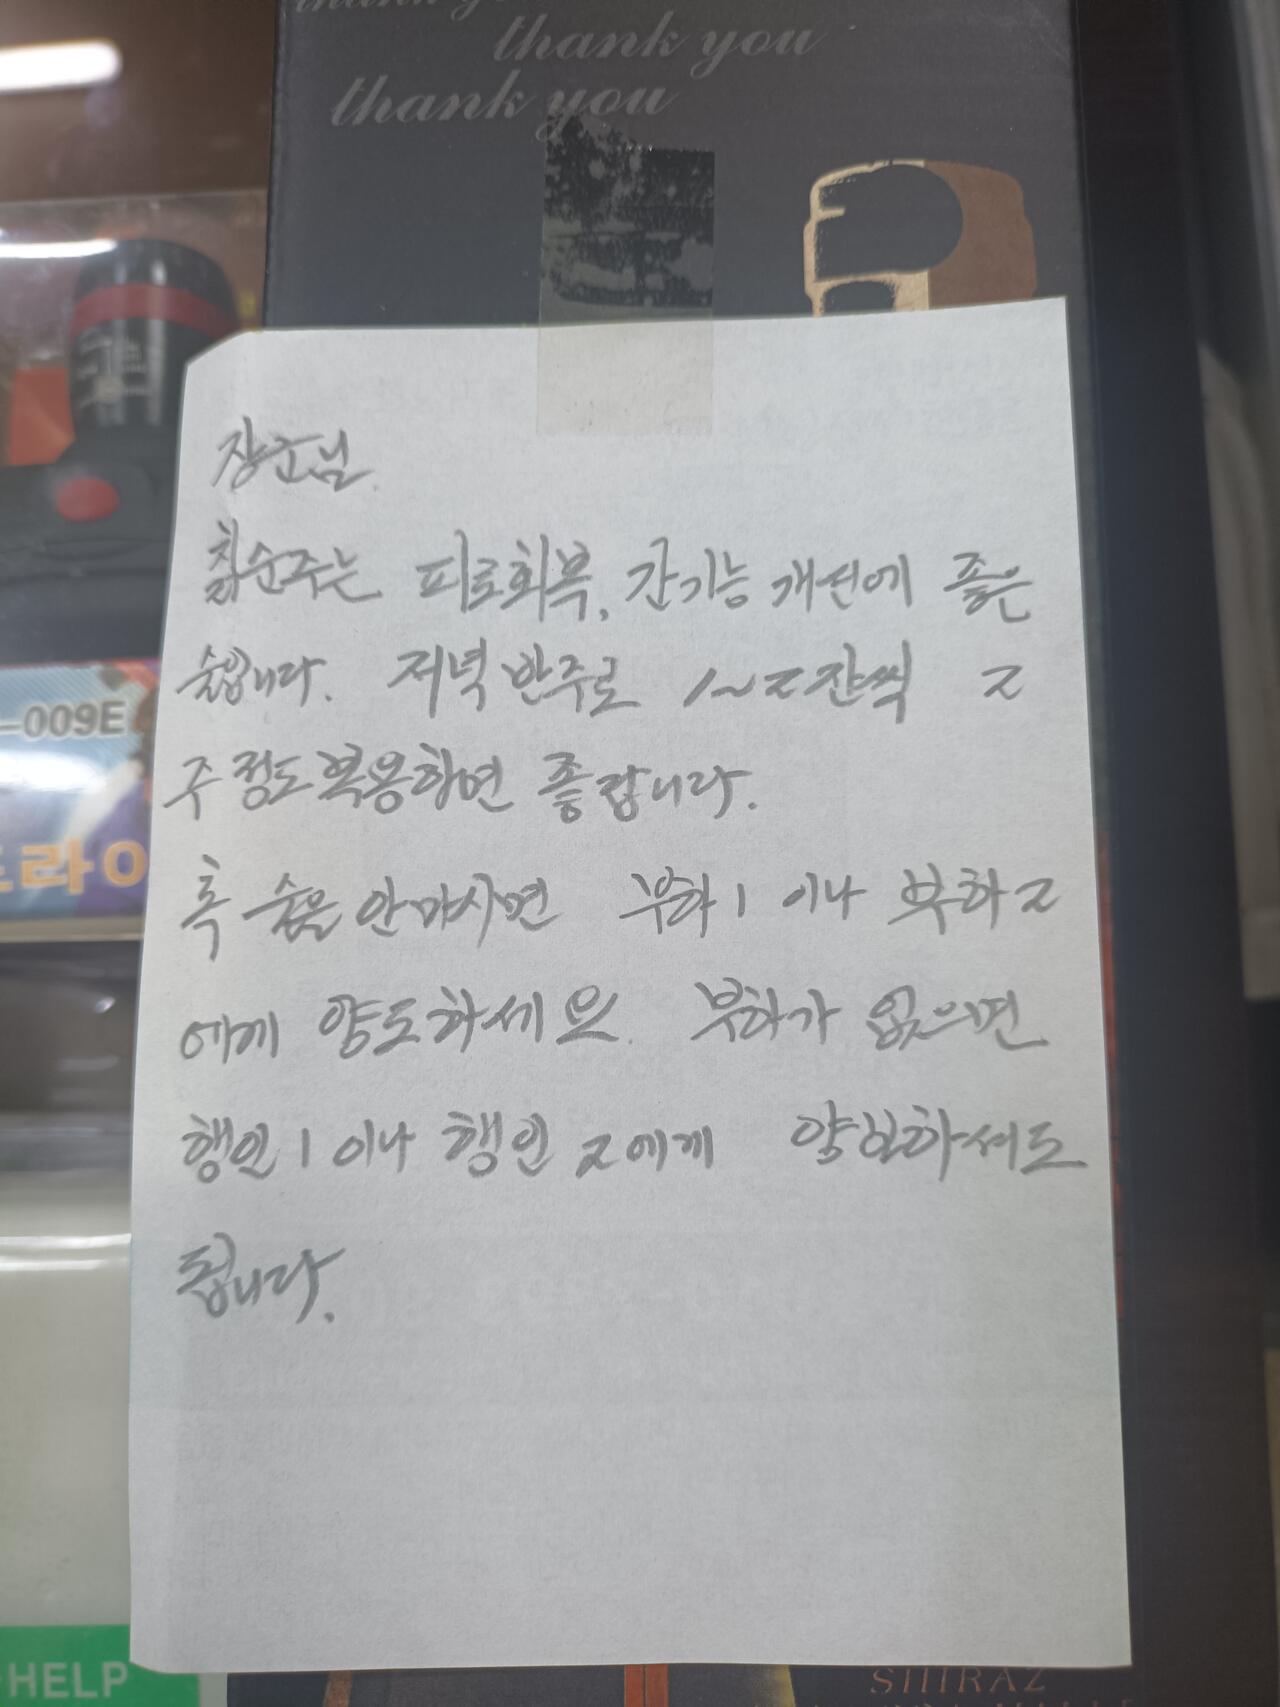 thank you
thank you
thank you
장군님.
칡순주는 피로회복, 간기능 개선에 좋은
술입니다. 저녁 반주로 1~2잔씩 2
주 정도 복용하면 좋답니다.
혹 술을 안마시면 부하1 이나 부하2
에게 양도하세요. 부하가 없으면
행인1 이나 행인2에게 양보하셔도
됩니다.
-009E
드라이
HELP
SHIRAZ